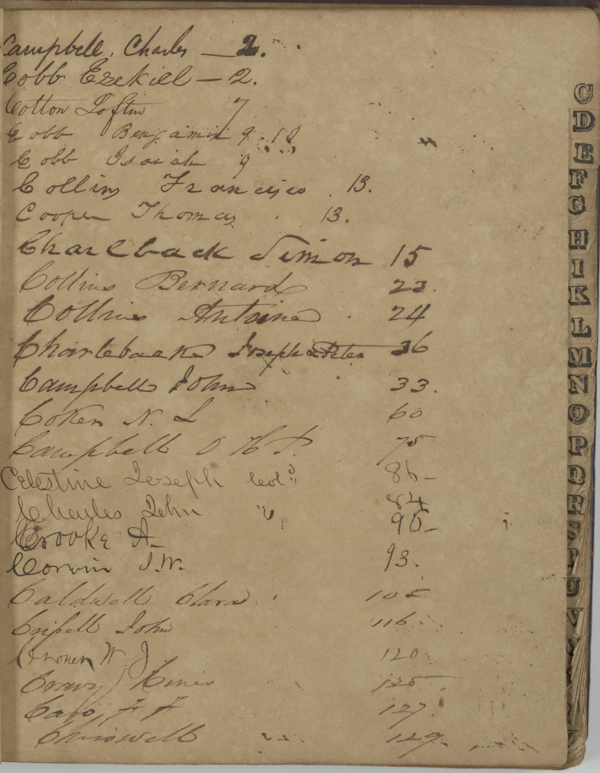 Campbell, Charles — 2.
Cobb Ezekiel — 2.
Cotton Loftin 7
Cobb Benjamin 9. 18
Cobb Isaiah 9
Collins Francisco . 13.
Cooper Thomas . 13.
Charleback Simon 15
Collins Bernard 23.
Collins Antoine . 24
Charlebaake Joseph 36
Campbell John 33.
Coker N. L 60
Campbell O H P. 75
Celestine Joseph 86-
Charles John " 84
Crooke A. 90-
Corwin J.W. 93.
Caldwell Clara . 105
John 116
W J 120
127.
Chriswell 129.
C
D
E
F
G
H
I
K
L
M
N
O
P
Q
R
S
T
U
V